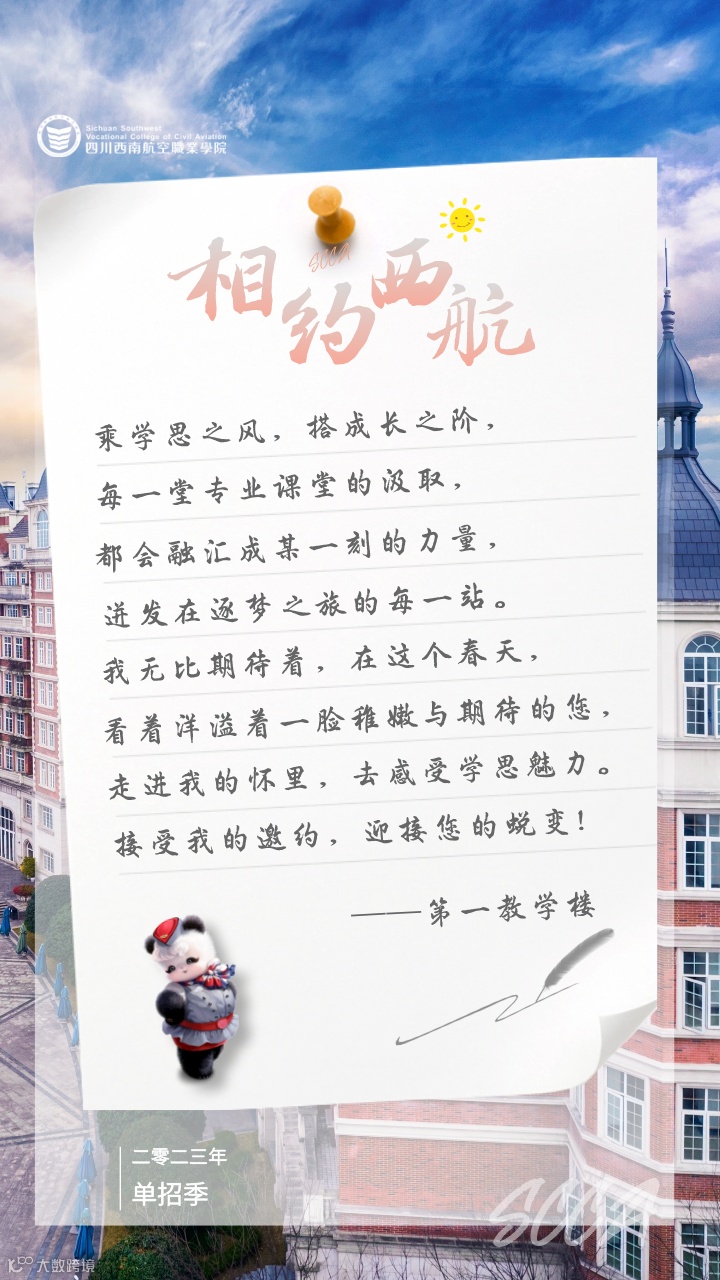 Sichuan Southwest
Vocational College of Civil Aviation
四川西南航空職業學院
相约西航
SCCA
乘学思之风，搭成长之阶，
每一堂专业课堂的汲取，
都会融汇成某一刻的力量，
迸发在逐梦之旅的每一站。
我无比期待着，在这个春天，
看着洋溢着一脸稚嫩与期待的您，
走进我的怀里，去感受学思魅力。
接受我的邀约，迎接您的蜕变！
——第一教学楼
二零二三年
单招季
SCCA
大数跨境